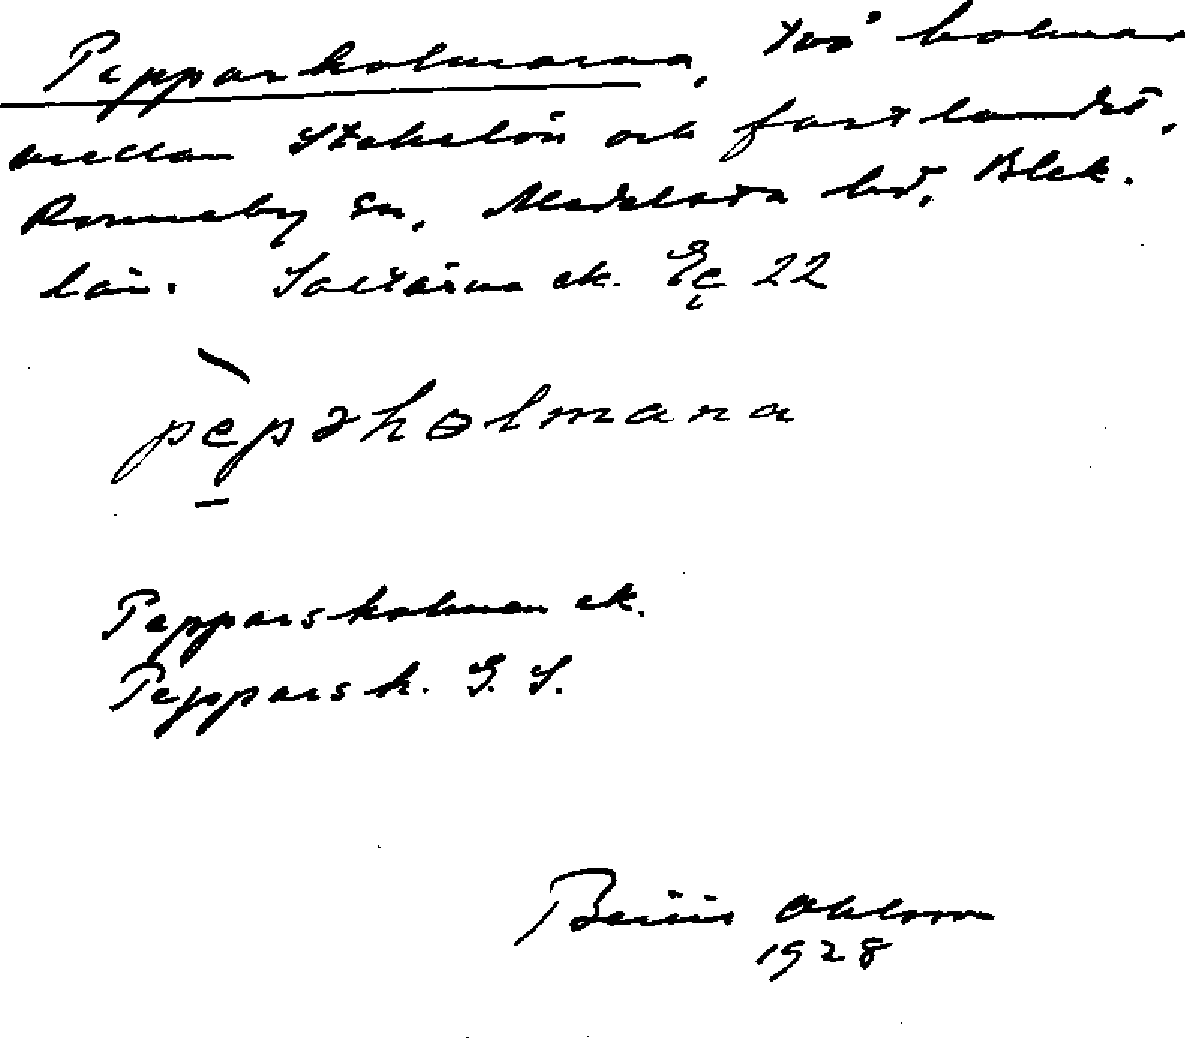 Pepparholmarna, två holmar
mellan Stekelön och fastlandet,
Ronneby sn, Medelsta hd, Blek.
län. Saltärna ek. Eç 22
pepərholmana
Peppersholmen ek.
Peppars h. G. S.
Ohlsson
1928